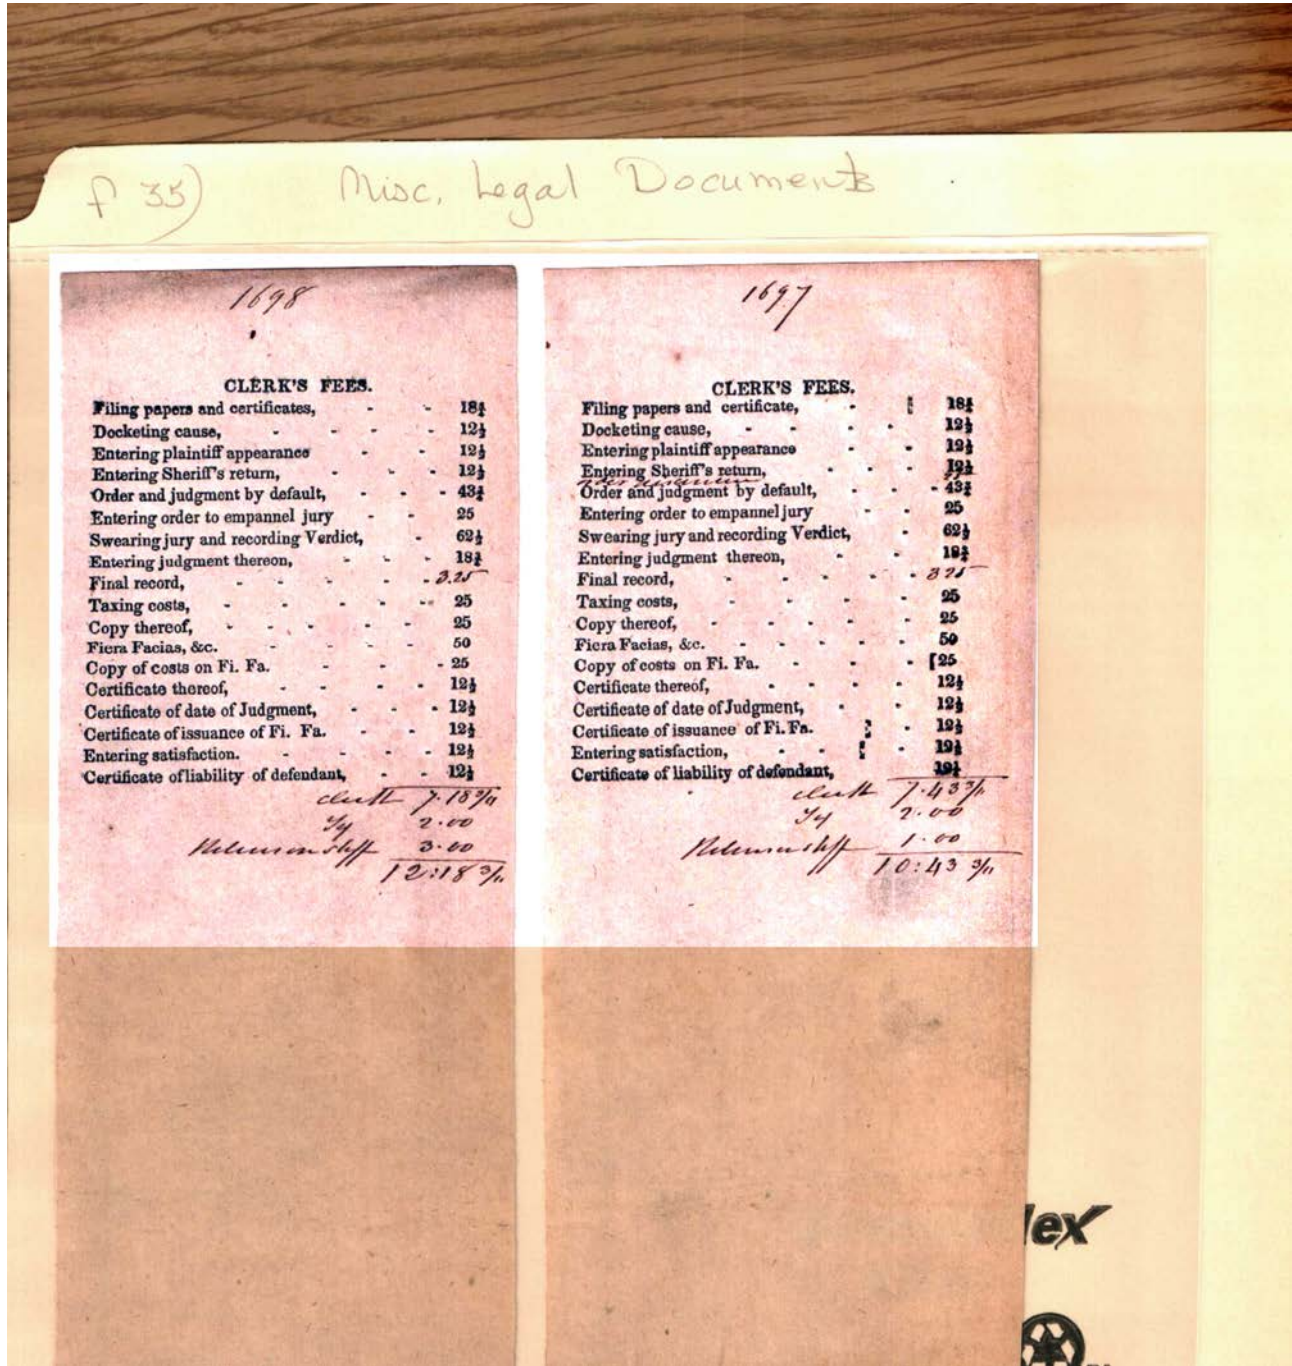 f 35) Misc. Legal Documents
1698
CLERK'S FEES.
Filing papers and certificates, - - 18¾
Docketing cause, - - - - 12½
Entering plaintiff appearance - - 12½
Entering Sheriff's return, - - - 12½
Order and judgment by default, - - 43¾
Entering order to empannel jury - - 25
Swearing jury and recording Verdict, - 62½
Entering judgment thereon, - - - 18¾
Final record, - - - - - 3.25
Taxing costs, - - - - - 25
Copy thereof, - - - - - 25
Fiera Facias, &c. - - - - 50
Copy of costs on Fi. Fa. - - - 25
Certificate thereof, - - - - 12½
Certificate of date of Judgment, - - - 12½
Certificate of issuance of Fi. Fa. - - 12½
Entering satisfaction. - - - - 12½
Certificate of liability of defendant, - - 12½
7.18 3/4
2.00
3.00
12:18 3/4
1697
CLERK'S FEES.
Filing papers and certificate, - 18¾
Docketing cause, - - - - - 12½
Entering plaintiff appearance - - 12½
Entering Sheriff's return, - - - 12½
Order and judgment by default, - - - 43¾
Entering order to empannel jury - - 25
Swearing jury and recording Verdict, - 62½
Entering judgment thereon, - - 18¾
Final record, - - - - - 3 25
Taxing costs, - - - - - 25
Copy thereof, - - - - - 25
Fiera Facias, &c. - - - - - 50
Copy of costs on Fi. Fa. - - - 25
Certificate thereof, - - - - 12½
Certificate of date of Judgment, - - - 12½
Certificate of issuance of Fi. Fa. - 12½
Entering satisfaction, - - 12½
Certificate of liability of defendant, 12½
7.43 3/4
2.00
1.00
10:43 3/4
lex